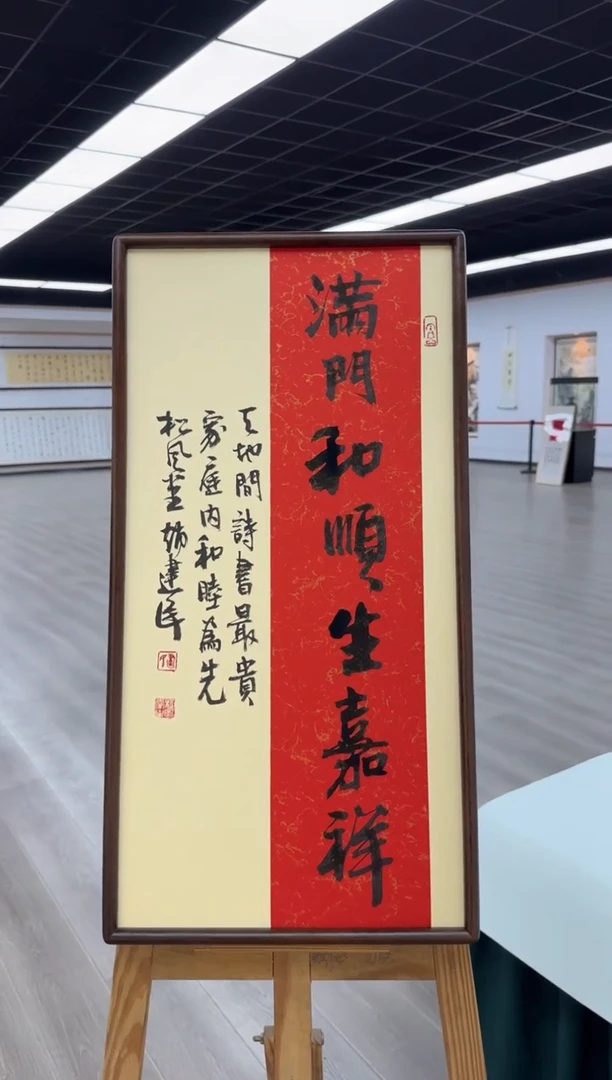 满門和順生嘉祥
天地間詩書最貴
家庭内和睦為先
松風堂 建民